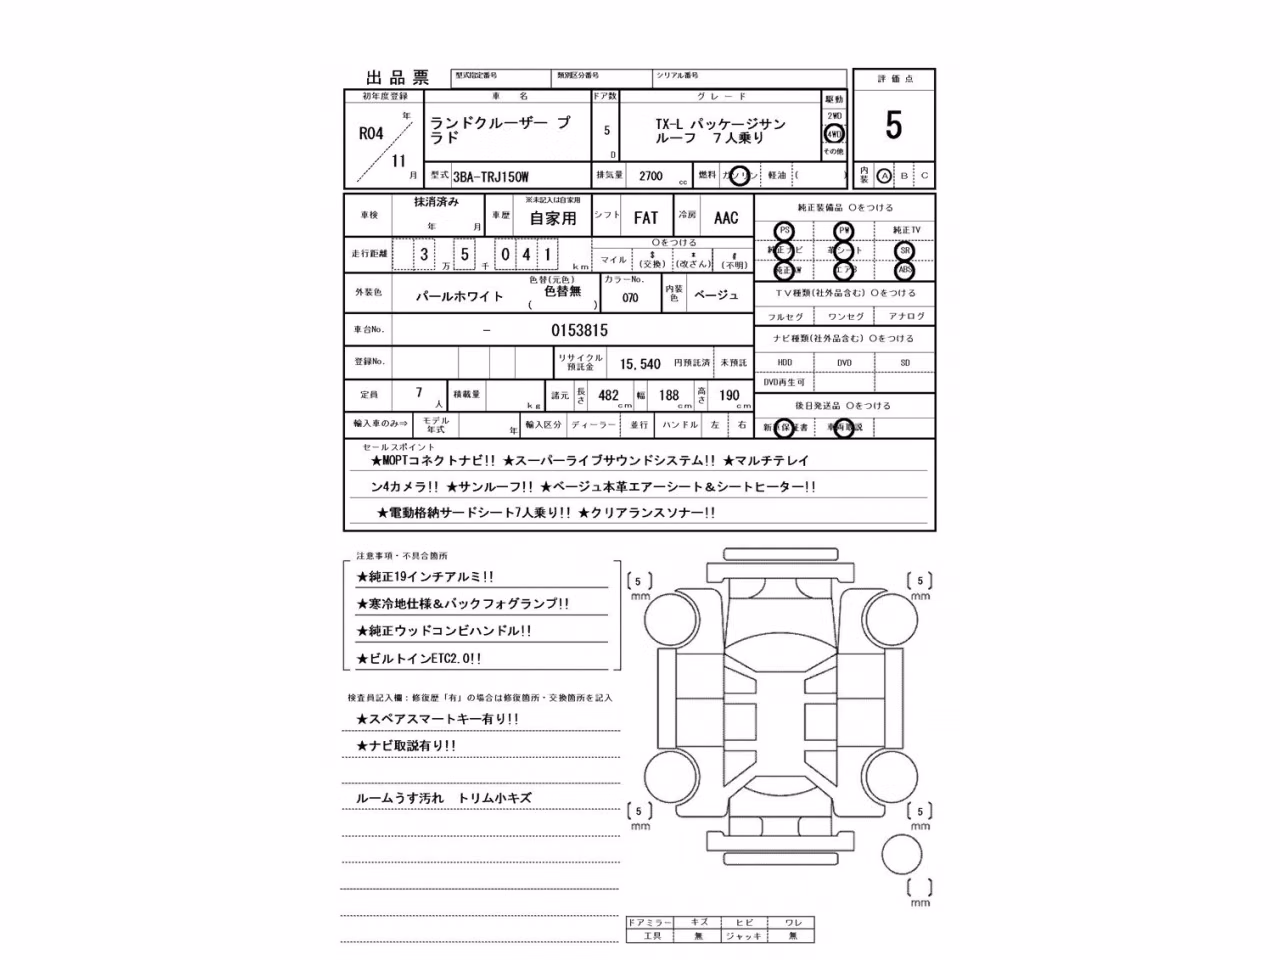 出品票
型式指定番号 類別区分番号 シリアル番号
評価点
5
内装 A B C
初年度登録 車名 ドア数 グレード 駆動
R04年 11月
ランドクルーザー プ
ラド
5D
TX-L パッケージサン
ルーフ 7人乗り
2WD
4WD
その他
型式 3BA-TRJ150W 排気量 2700cc 燃料 ガソリン 軽油 ( )
車検 抹消済み 年 月 車歴 ※未記入は自家用 自家用 シフト FAT 冷房 AAC
走行距離 3万5千041km
〇をつける
マイル $(交換) *(改ざん) #(不明)
外装色 パールホワイト 色替(元色) 色替無 ( ) カラーNo. 070 内装色 ベージュ
車台No. - 0153815
登録No. リサイクル預託金 15,540 円預託済 未預託
定員 7人 積載量 kg 諸元 長さ 482cm 幅 188cm 高さ 190cm
輸入車のみ⇒ モデル年式 年 輸入区分 ディーラー 並行 ハンドル 左 右
純正装備品 〇をつける
PS PW 純正TV
純正ナビ 革シート SR
純正AW エアB ABS
TV種類(社外品含む) 〇をつける
フルセグ ワンセグ アナログ
ナビ種類(社外品含む) 〇をつける
HDD DVD SD
DVD再生可
後日発送品 〇をつける
新車保証書 車両取説
セールスポイント
★MOPTコネクトナビ!! ★スーパーライブサウンドシステム!! ★マルチテレイ
ン4カメラ!! ★サンルーフ!! ★ベージュ本革エアーシート＆シートヒーター!!
★電動格納サードシート7人乗り!! ★クリアランスソナー!!
注意事項・不具合箇所
★純正19インチアルミ!!
★寒冷地仕様＆バックフォグランプ!!
★純正ウッドコンビハンドル!!
★ビルトインETC2.0!!
検査員記入欄：修復歴「有」の場合は修復箇所・交換箇所を記入
★スペアスマートキー有り!!
★ナビ取説有り!!
ルームうす汚れ トリム小キズ
[5] mm
[5] mm
[5] mm
[5] mm
[ ] mm
ドアミラー キズ ヒビ ワレ
工具 無 ジャッキ 無